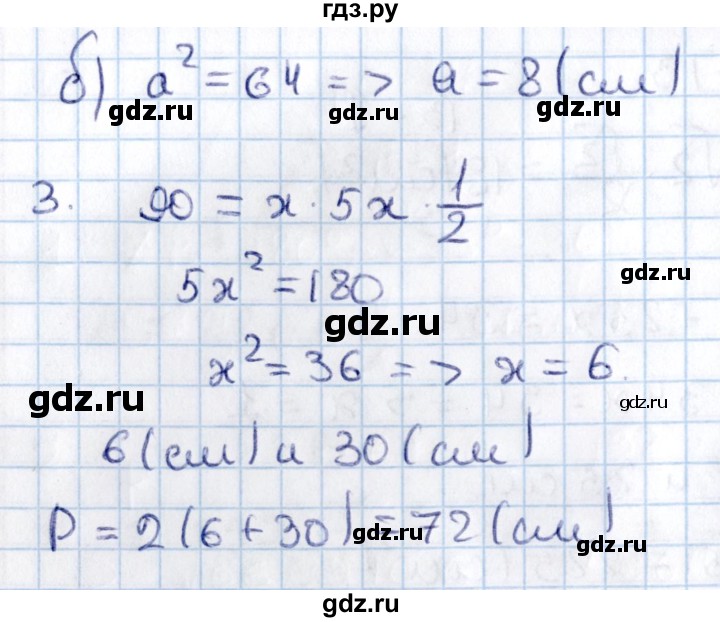 гдз.ру
б) a² = 64 => a = 8 (см)
gdz.ru gdz.ru gdz.ru
3. 90 = x · 5x · 1/2
gdz.ru
5x² = 180
gdz.ru
x² = 36 => x = 6.
gdz.ru gdz.ru
6 (см) и 30 (см)
P = 2 (6 + 30) = 72 (см)
gdz.ru gdz.ru gdz.ru
gdz.ru